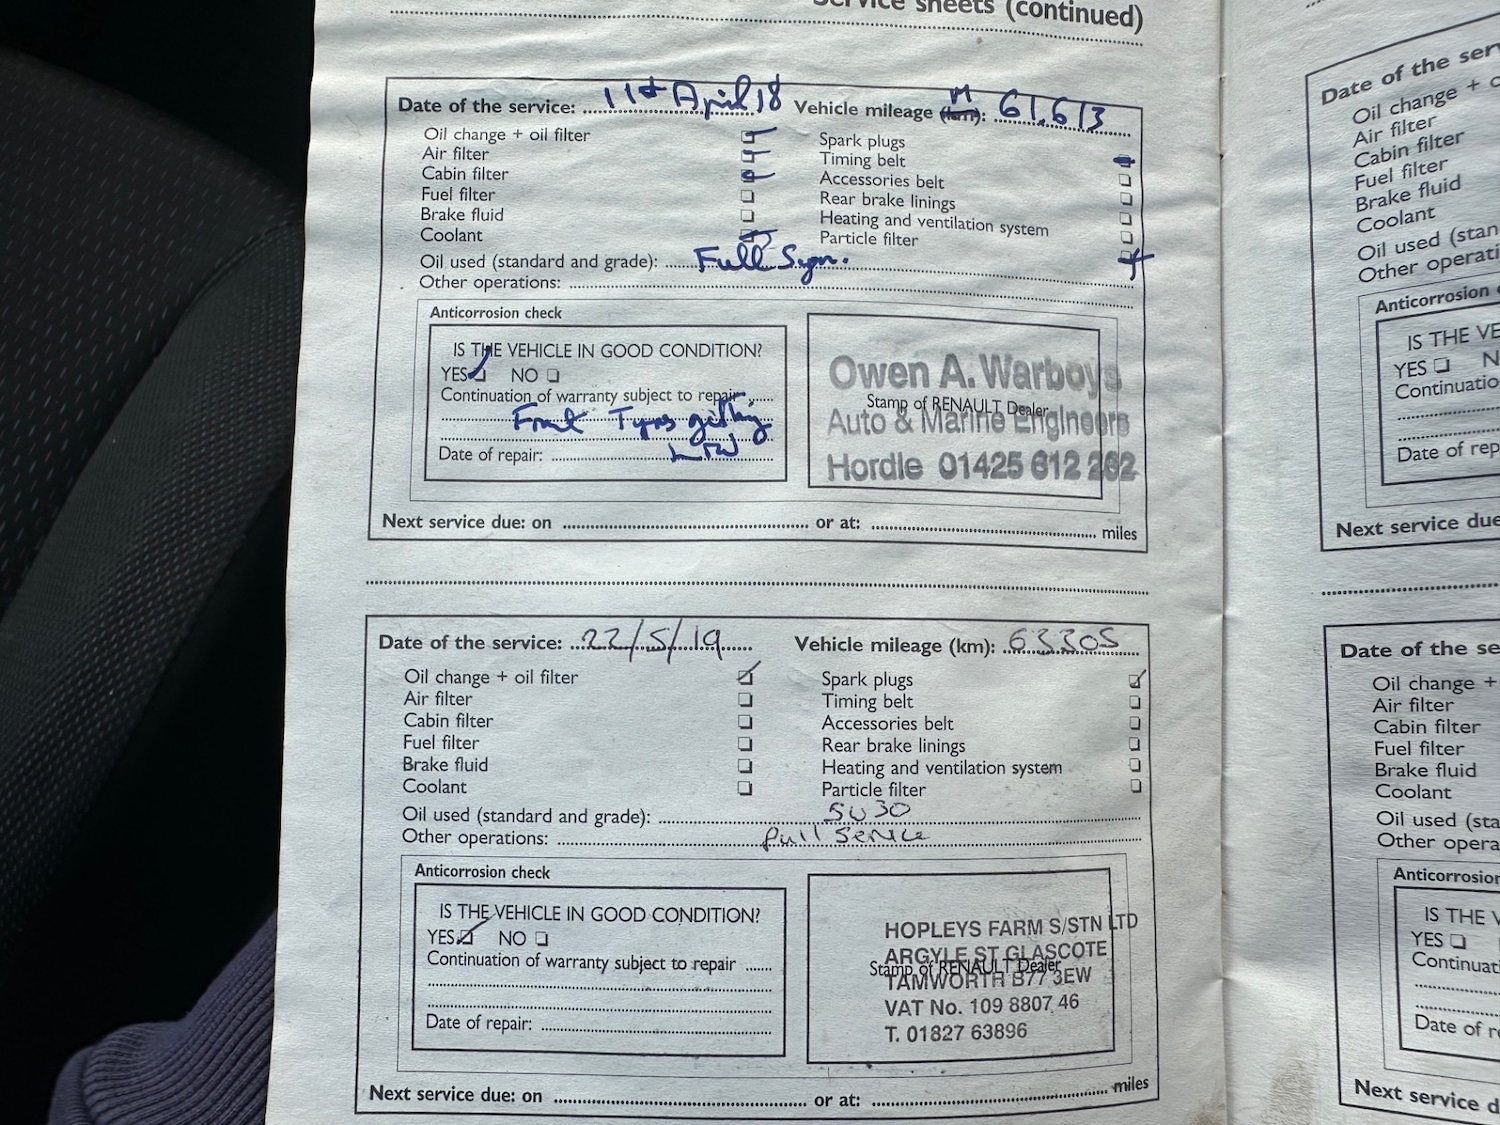 Service sheets (continued)
Date of the service: 11th April 18 Vehicle mileage (km) M: 61,613
Oil change + oil filter
Spark plugs
Air filter
Timing belt
Cabin filter
Accessories belt
Fuel filter
Rear brake linings
Brake fluid
Heating and ventilation system
Coolant
Particle filter
Oil used (standard and grade): Full Syn.
Other operations:
Anticorrosion check
IS THE VEHICLE IN GOOD CONDITION?
YES NO
Continuation of warranty subject to repair
Front Tyres getting
Low
Date of repair:
Owen A. Warboys
Stamp of RENAULT Dealer
Auto & Marine Engineers
Hordle 01425 612 262
Next service due: on or at: miles
Date of the service: 22/5/19 Vehicle mileage (km): 63305
Oil change + oil filter
Spark plugs
Air filter
Timing belt
Cabin filter
Accessories belt
Fuel filter
Rear brake linings
Brake fluid
Heating and ventilation system
Coolant
Particle filter
Oil used (standard and grade): 5W30
Other operations: full service
Anticorrosion check
IS THE VEHICLE IN GOOD CONDITION?
YES NO
Continuation of warranty subject to repair
Date of repair:
HOPLEYS FARM S/STN LTD
ARGYLE ST GLASCOTE
Stamp of RENAULT Dealer
TAMWORTH B77 3EW
VAT No. 109 8807 46
T. 01827 63896
Next service due: on or at: miles
Date of the ser
Oil change + o
Air filter
Cabin filter
Fuel filter
Brake fluid
Coolant
Oil used (stan
Other operati
Anticorrosion
IS THE VE
YES N
Continuatio
Date of rep
Next service due
Date of the se
Oil change +
Air filter
Cabin filter
Fuel filter
Brake fluid
Coolant
Oil used (sta
Other opera
Anticorrosion
IS THE V
YES
Continuati
Date of r
Next service d